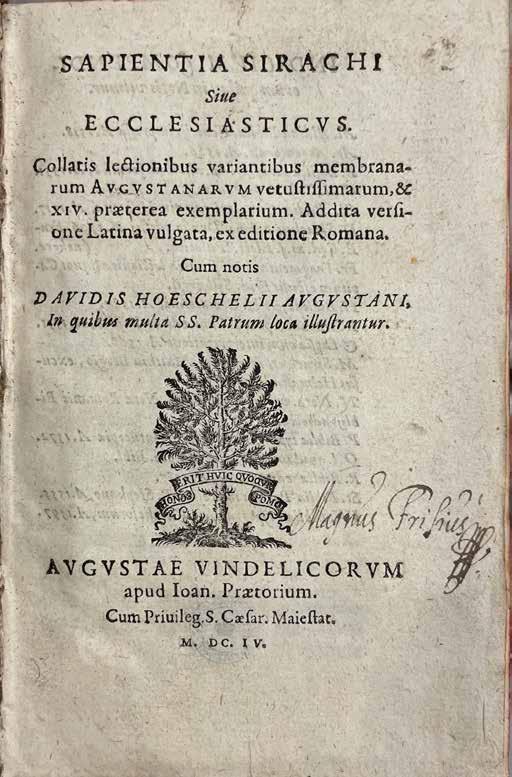 SAPIENTIA SIRACHI
Siue
ECCLESIASTICVS.
Collatis lectionibus variantibus membrana-
rum AVGVSTANARVM vetustissimarum, &
XIV. præterea exemplarium. Addita versi-
one Latina vulgata, ex editione Romana.
Cum notis
DAVIDIS HOESCHELII AVGVSTANI,
In quibus multa SS. Patrum loca illustrantur.
HONOS ERIT HVIC QVOQVE POMO
Magnus Frisius
AVGVSTAE VINDELICORVM
apud Ioan. Prætorium.
Cum Priuileg. S. Cæsar. Maiestat.
M. DC. IV.